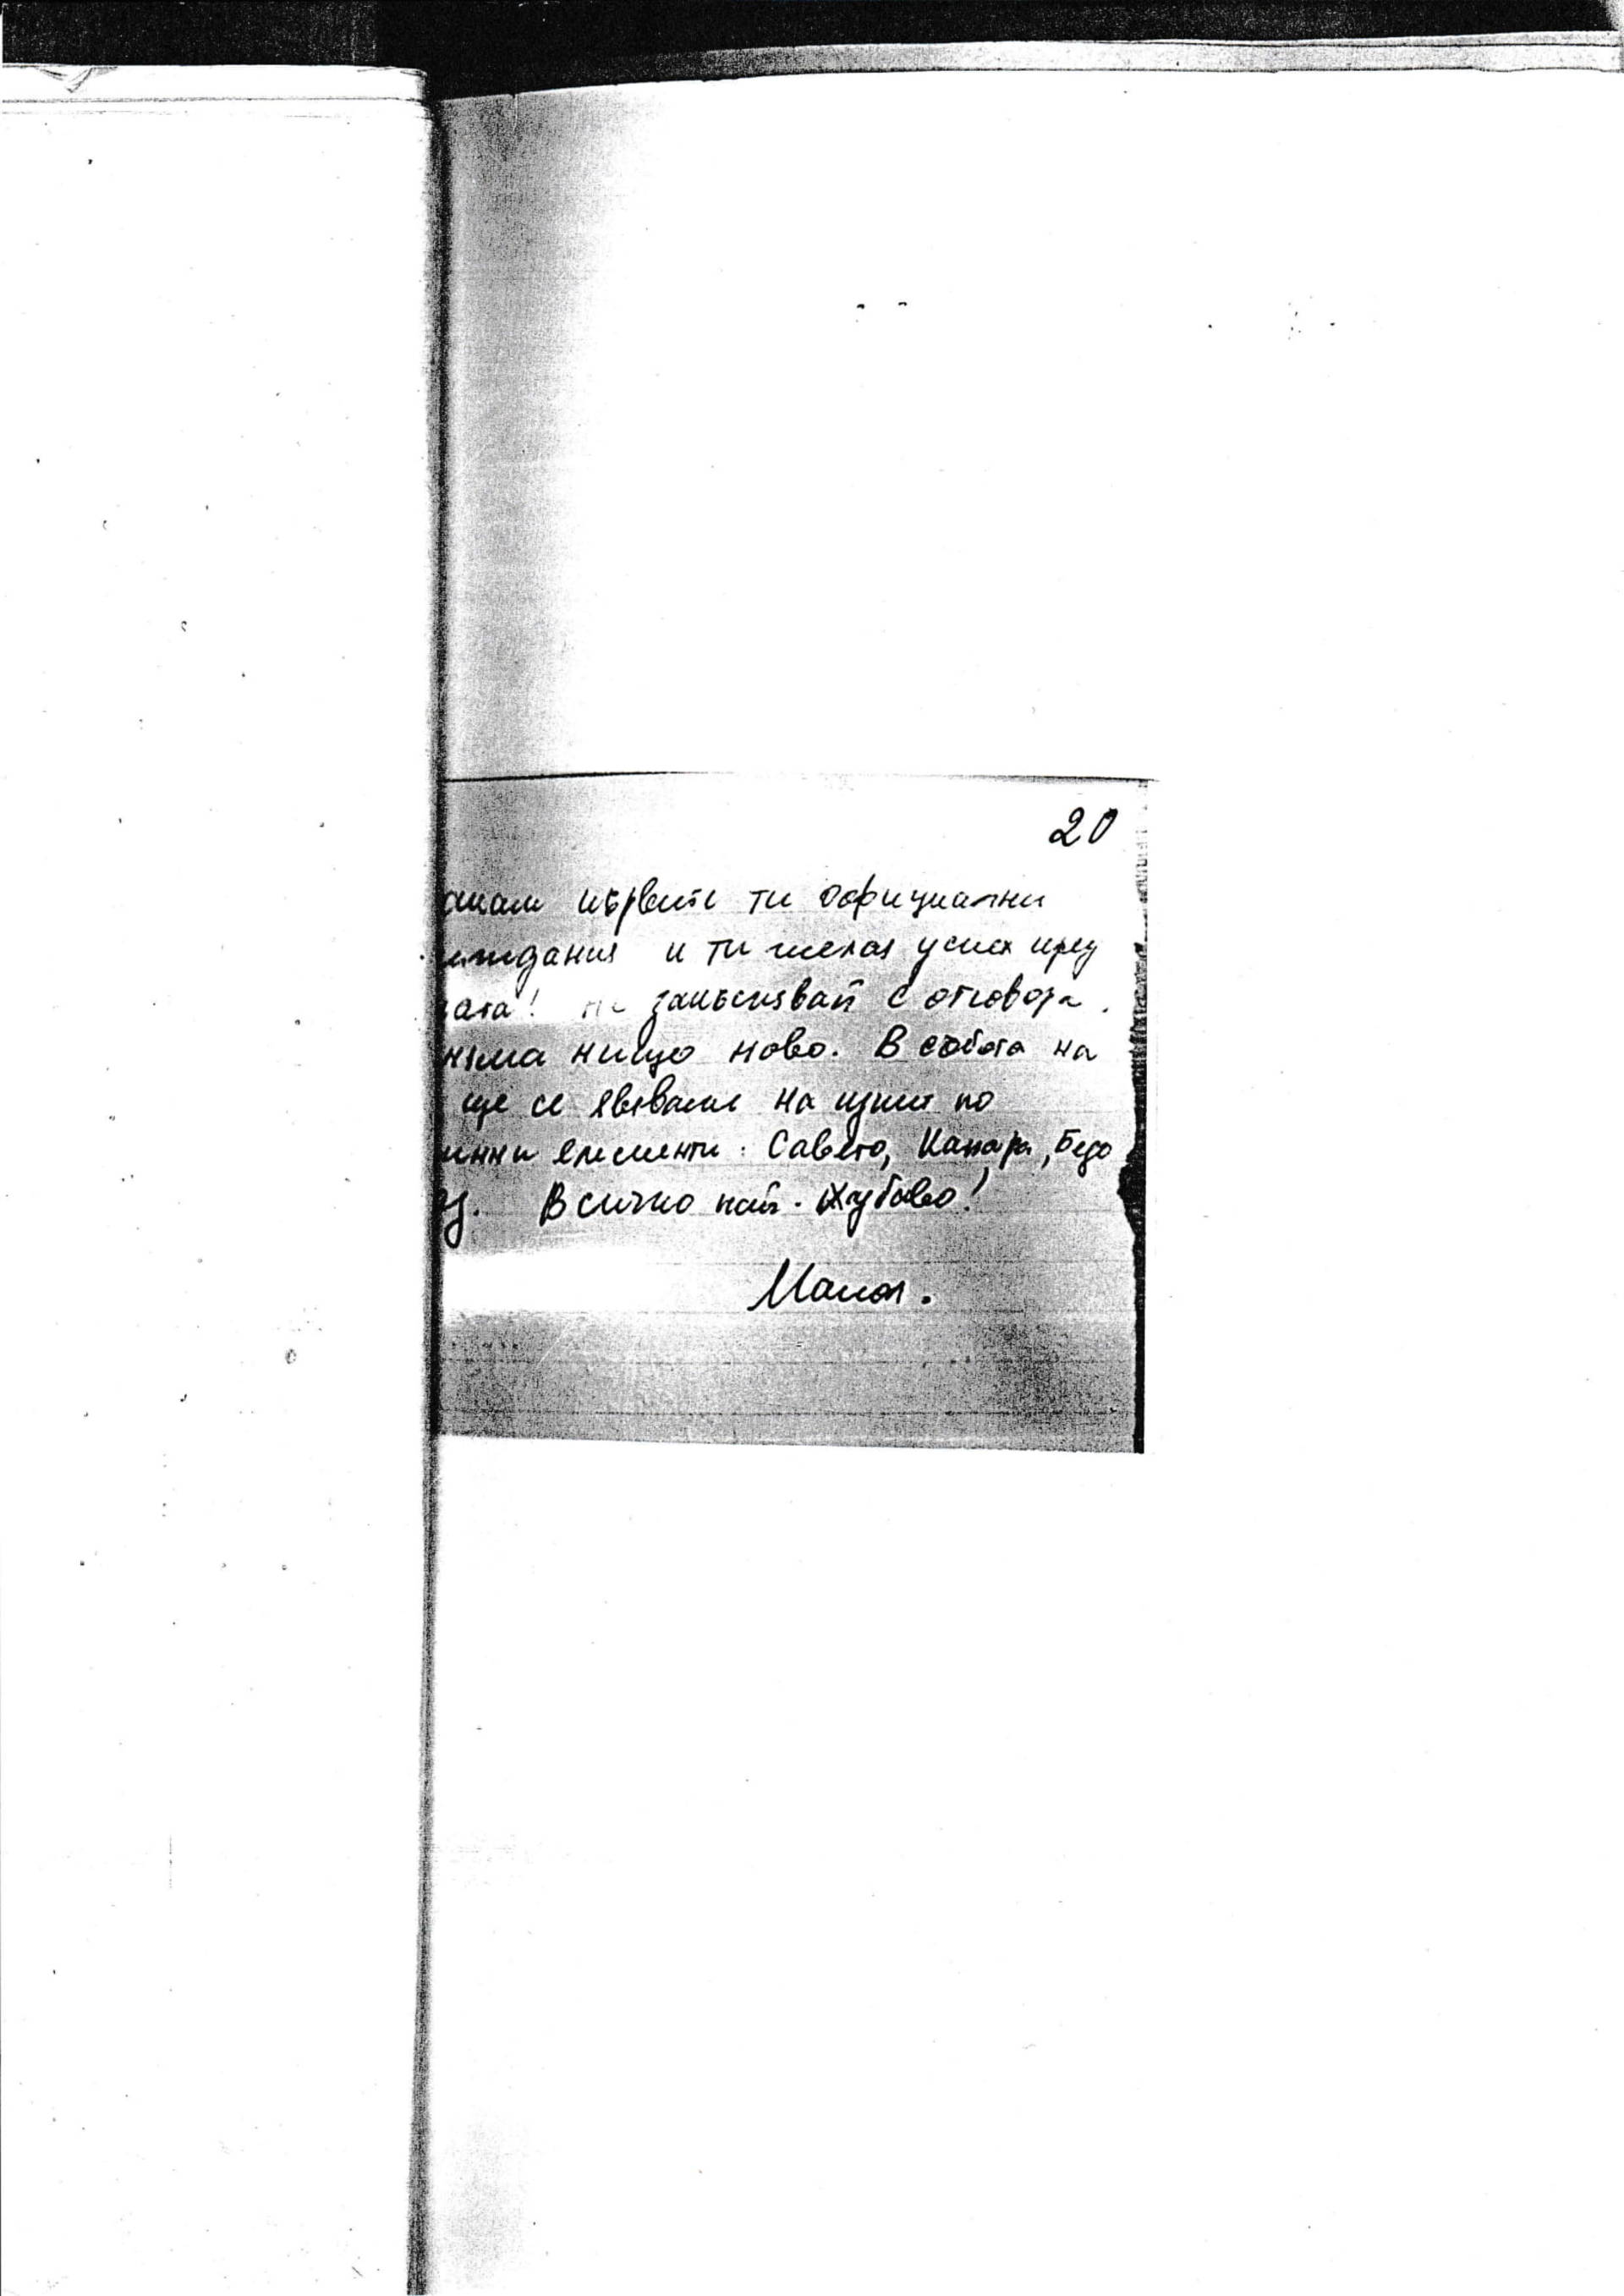 20
акам първите ти официални
иждания и ти желая успех пред
ата! Не закъснявай с отговора.
няма нищо ново. В събота на
ще се явяваме на изпит по
инни елементи: Савето, Канара, Бедо
Всичко най-хубаво!